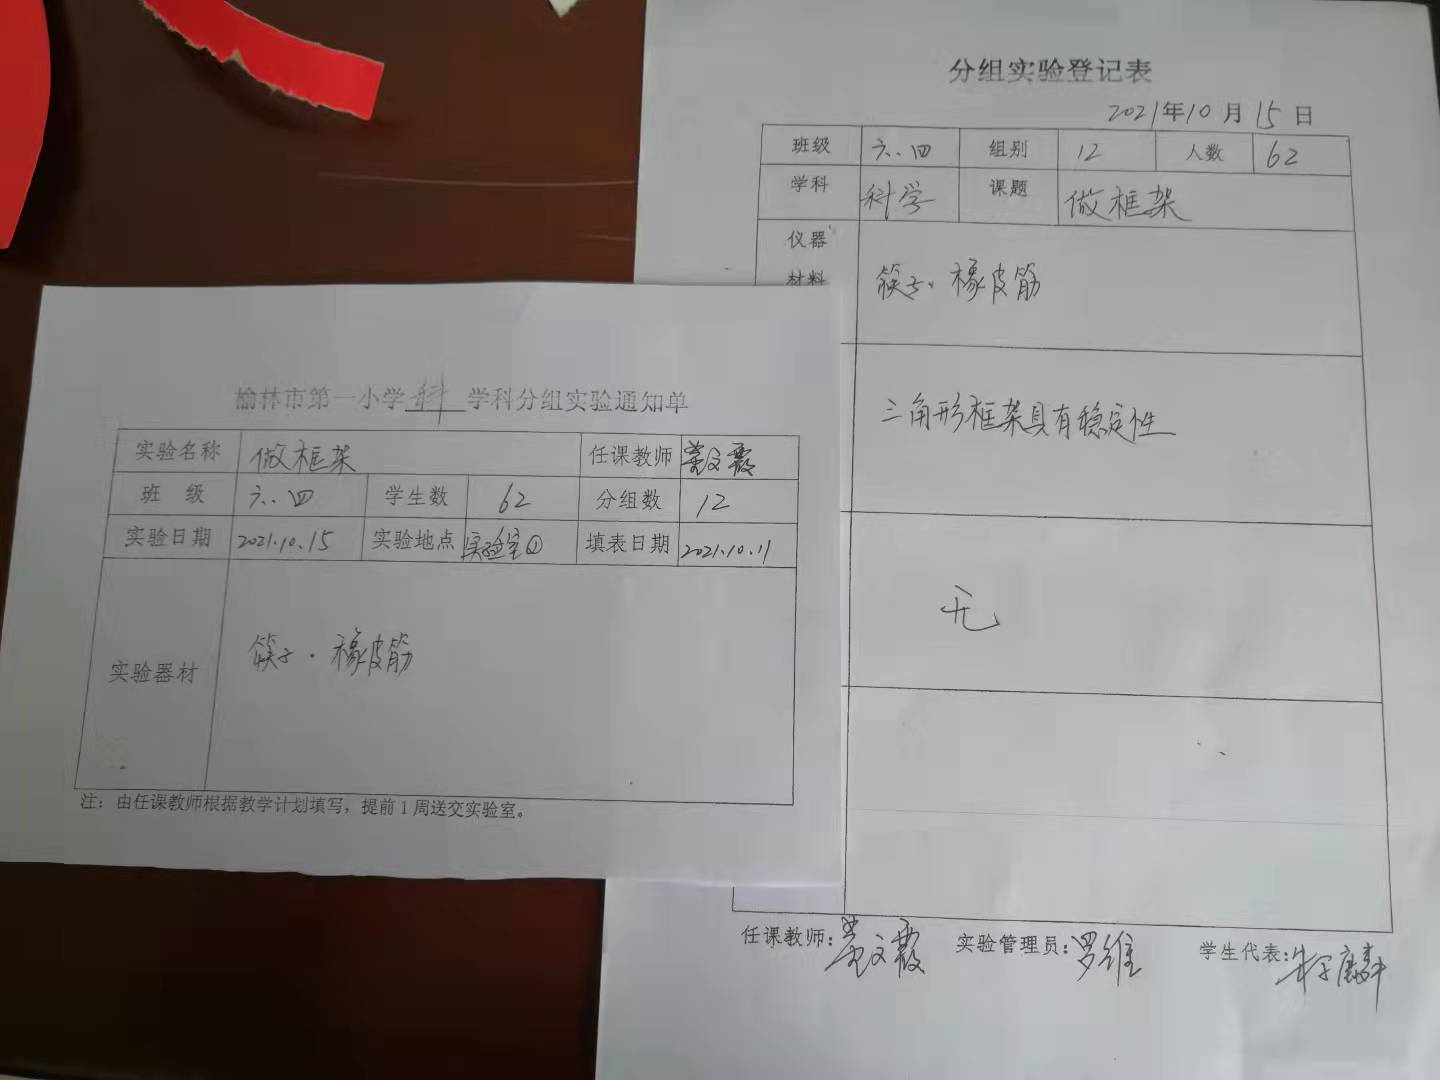 榆林市第一小学 科 学科分组实验通知单
实验名称 做框架 任课教师 文霞
班 级 六.四 学生数 62 分组数 12
实验日期 2021.10.15 实验地点 实验室① 填表日期 2021.10.11
实验器材 筷子.橡皮筋
注：由任课教师根据教学计划填写，提前1周送交实验室。
分组实验登记表
2021年10月15日
班级 六.四 组别 12 人数 62
学科 科学 课题 做框架
仪器
材料
筷子.橡皮筋
三角形框架具有稳定性
无
任课教师： 文霞 实验管理员：罗维 学生代表：